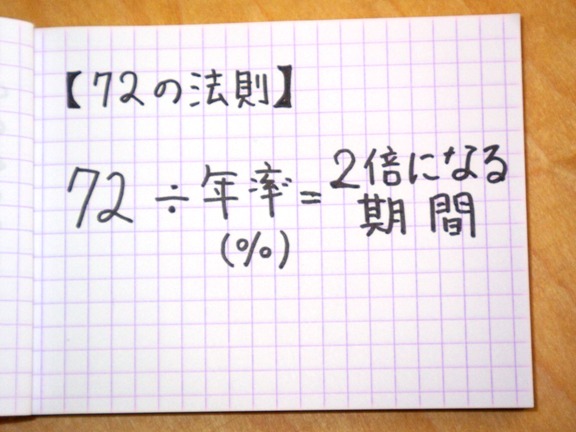 【72の法則】
72÷年率=2倍になる
(%) 期間